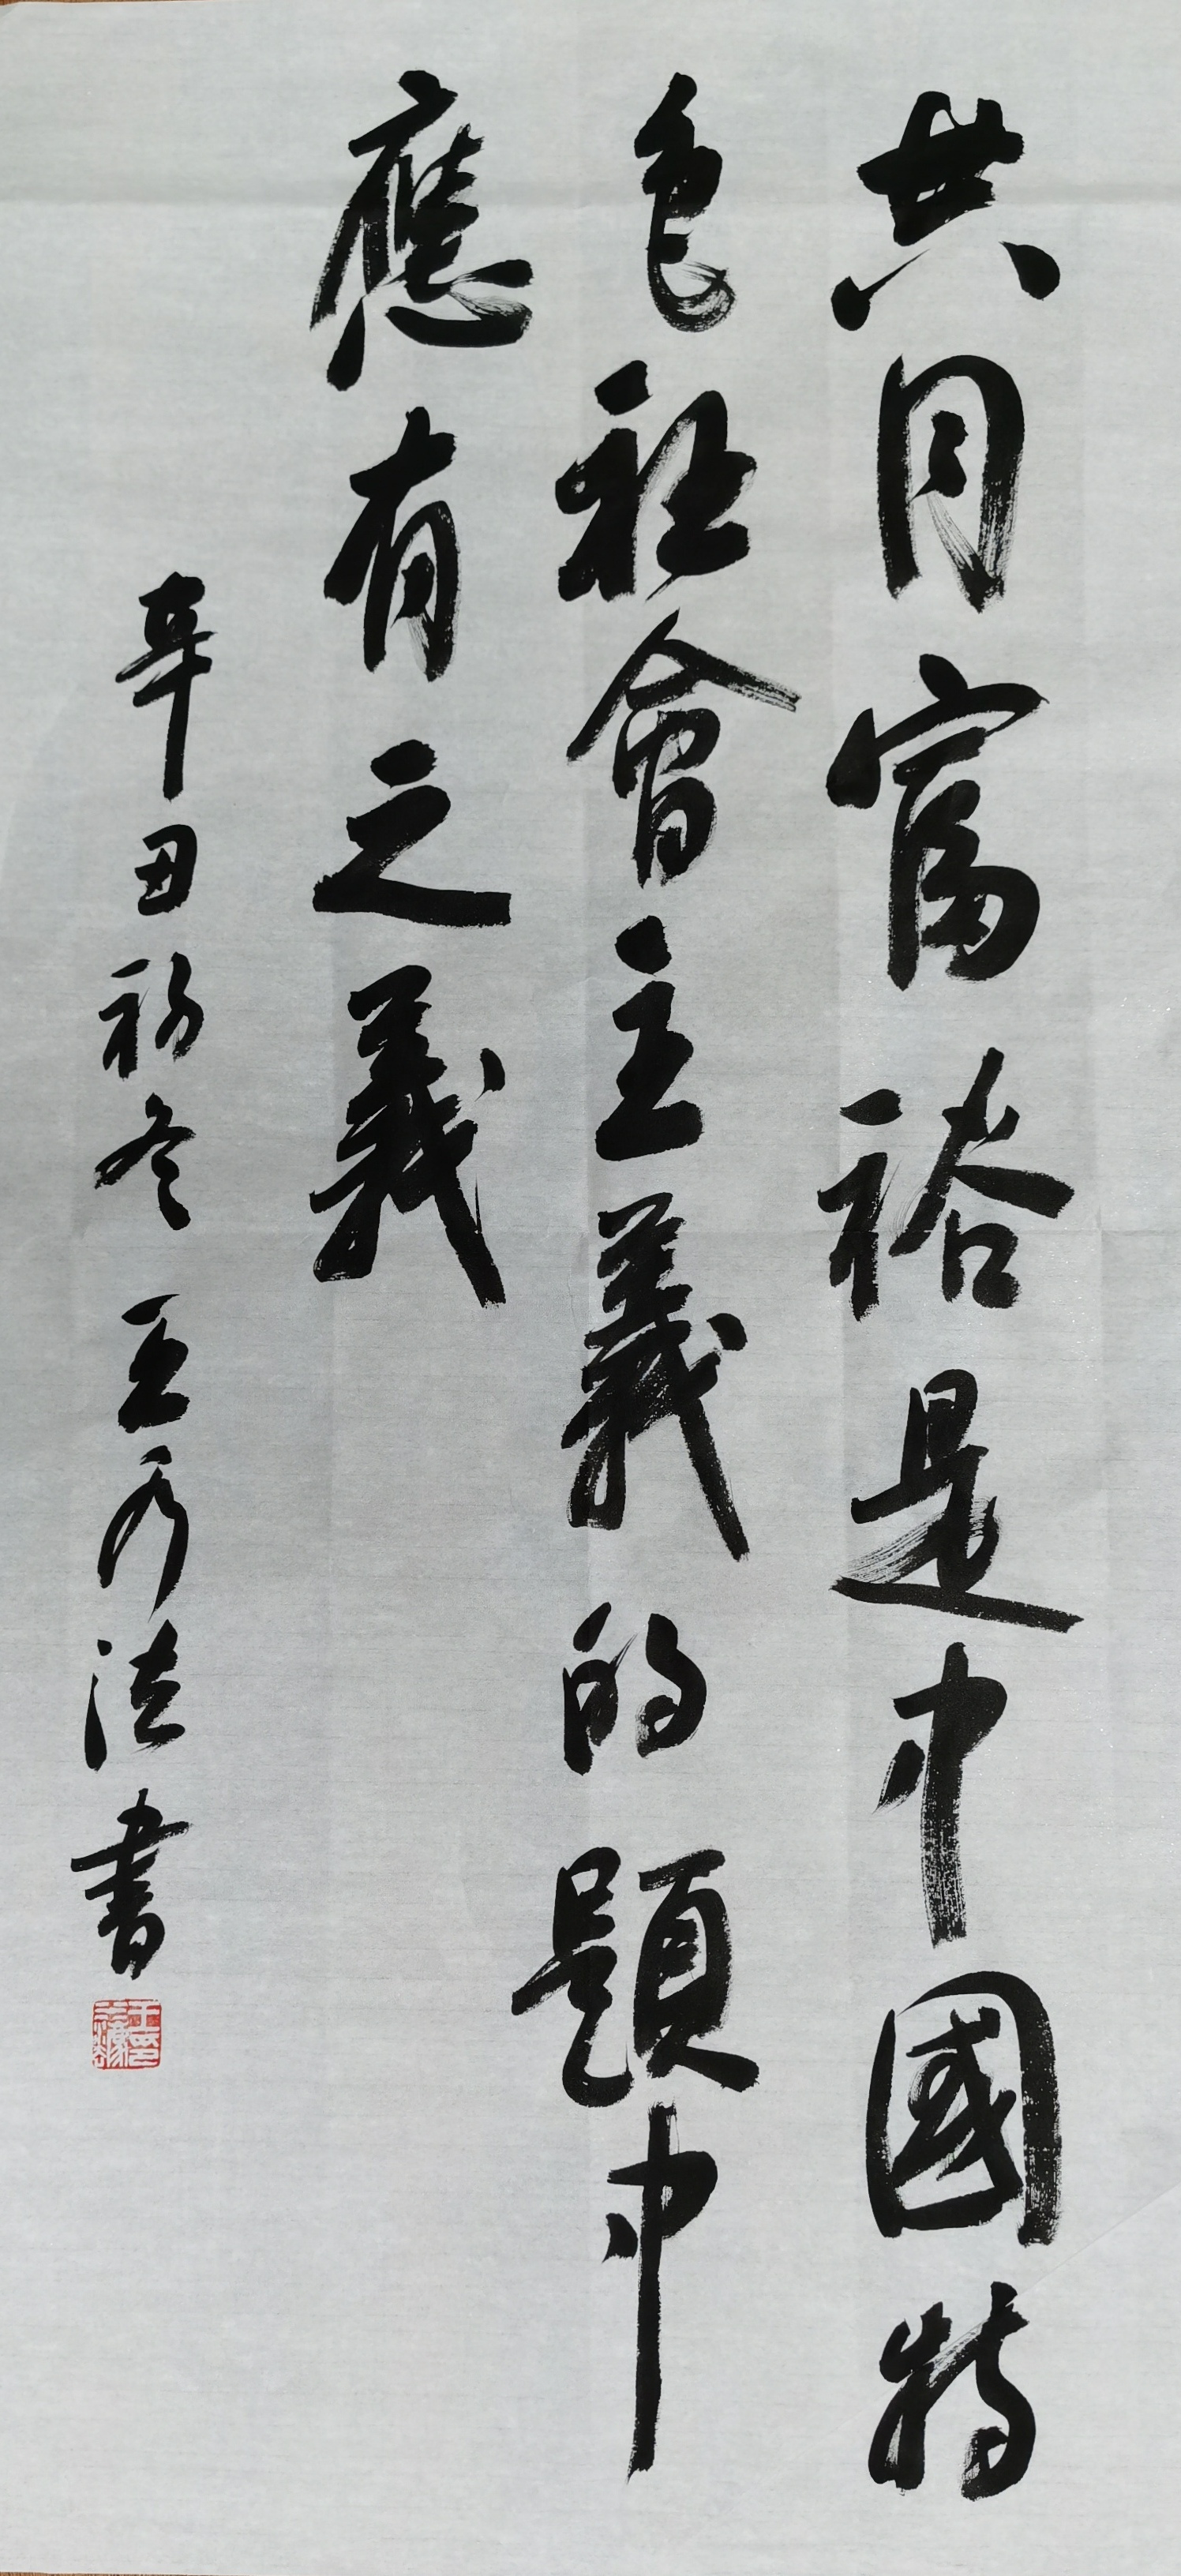 共同富裕是中國特
色社會主義的題中
應有之義
辛丑初冬 王秀法書